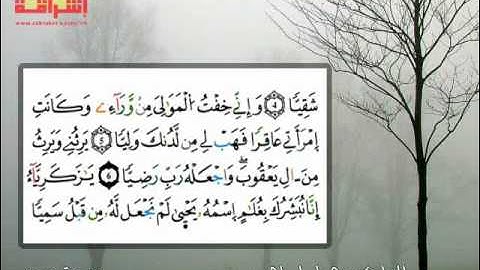 إشراقة
شَقِيًّا 4 وَإِنِّي خِفْتُ اُ۬لْمَوَٰلِيَ مِنْ وَّرَآءِے وَكَانَتِ
اِ۪مْرَأَتِي عَاقِرًا فَهَبْ لِي مِن لَّدُنكَ وَلِيًّا 5 يَرِثُنِي وَيَرِثُ
مِنَ اٰلِ يَعْقُوبَ وَاجْعَلْهُ رَبِّ رَضِيًّا 6 يَٰزَكَرِيَّآءُ
إِنَّا نُبَشِّرُكَ بِغُلَٰمٍ اِ۪سْمُهُۥ يَحْيٜىٰ لَمْ نَجْعَل لَّهُۥ مِن قَبْلُ سَمِيًّا